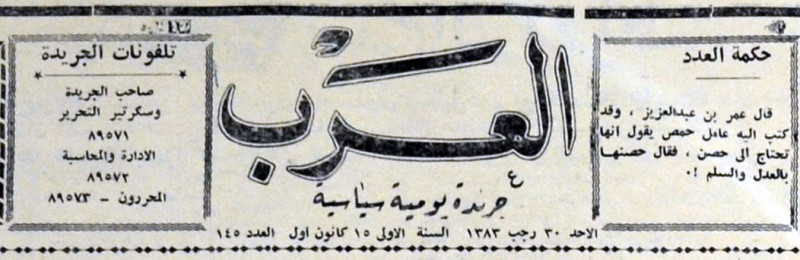 حكمة العدد
قال عمر بن عبدالعزيز ، وقد
كتب اليه عامل حمص يقول انها
تحتاج الى حصن ، فقال حصنها
بالعدل والسلم !٠
العرب
جريدة يومية سياسية
الاحد ٣٠ رجب ١٣٨٣ السنة الاولى ١٥ كانون اول العدد ١٤٥
تلفونات الجريدة
صاحب الجريدة
وسكرتير التحرير
٨٩٥٧١
الادارة والمحاسبة
٨٩٥٧٢
المحررون - ٨٩٥٧٣